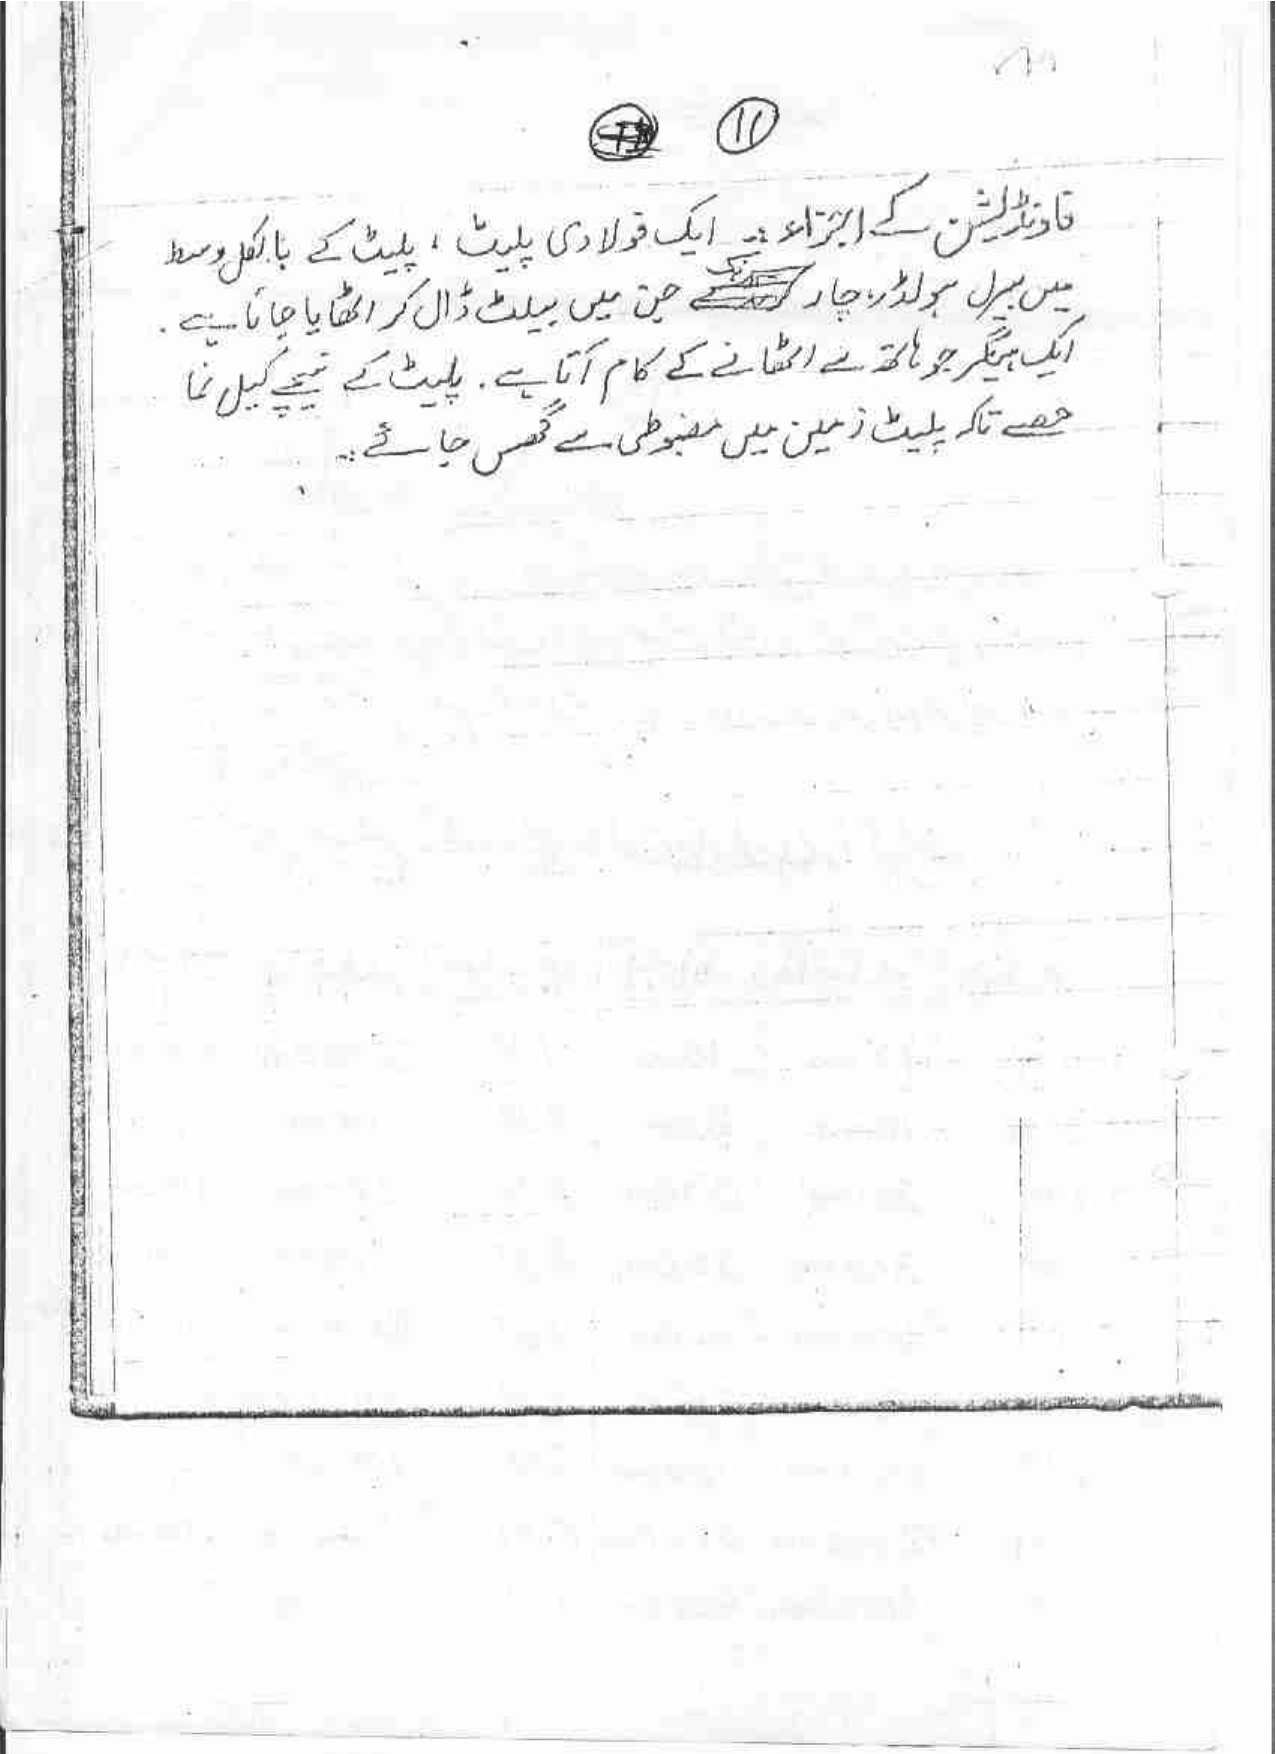 ۱۱
فاونڈیشن کے اجزاء :۔ ایک فولادی پلیٹ ، پلیٹ کے بالکل وسط
میں بیرل ہولڈر، چار ہک جن میں بیلٹ ڈال کر اٹھایا جاتا ہے ۔
ایک ہینگر جو ہاتھ سے اٹھانے کے کام آتا ہے ۔ پلیٹ کے نیچے کیل نما
حصے تاکہ پلیٹ زمین میں مضبوطی سے گھس جائے :۔